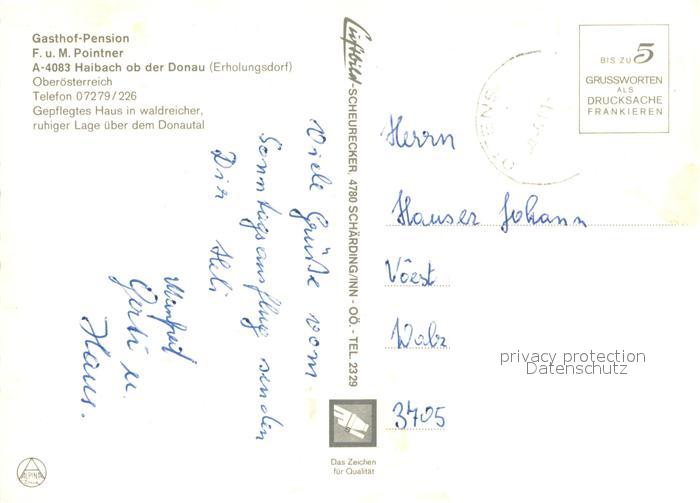 Gasthof-Pension
F. u. M. Pointner
A-4083 Haibach ob der Donau (Erholungsdorf)
Oberösterreich
Telefon 07279/226
Gepflegtes Haus in waldreicher,
ruhiger Lage über dem Donautal
Viele Grüße vom
Sonntagsausflug senden
Dir Heli
Manfred
Gerti u.
Hans.
Luftbild-SCHEURECKER, 4780 SCHÄRDING/INN - OÖ. - TEL. 2329
BIS ZU 5
GRUSSWORTEN
ALS
DRUCKSACHE
FRANKIEREN
Herrn
Hauser Johann
Vöest
3705
privacy protection
Datenschutz
Das Zeichen
für Qualität
ALPINA